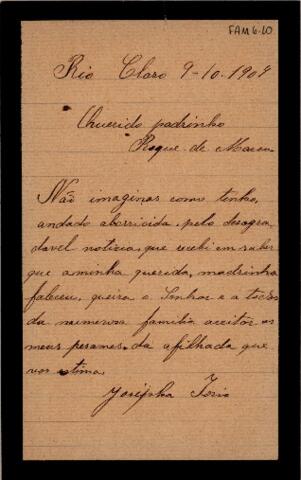 FAM 6.10
Rio Claro 9-10-1909
Querido padrinho
Roque de
Não imaginas como tenho,
andado aborricida, pelo desagra,
davel noticia, que recebi em saber
que a minha querida, madrinha
faleceu, queira o Senhor e a todos
da numerosa familia aceitar os
meus pesames, da afilhada que
vos estima.
Josépha